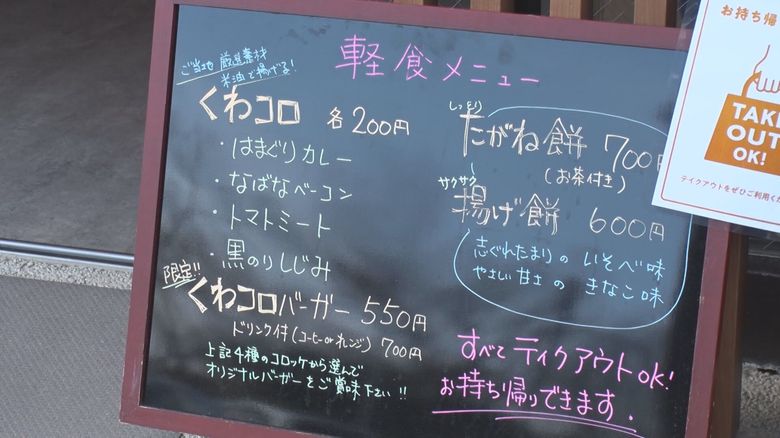 軽食メニュー
ご当地 厳選素材
米油で揚げる!
くわコロ 各200円
・はまぐりカレー
・なばなベーコン
・トマトミート
・黒のりしじみ
限定!!
くわコロバーガー 550円
ドリンク付(コーヒーorオレンジ) 700円
上記4種のコロッケから選んで
オリジナルバーガーをご賞味下さい!!
しっとり
たがね餅 700円
(お茶付き)
サクサク
揚げ餅 600円
志ぐれたまりの いそべ味
やさしい甘さの きなこ味
すべてテイクアウトOK!
お持ち帰りできます.
お持ち帰
TAKE
OUT
OK!
テイクアウトをぜひご利用くだ